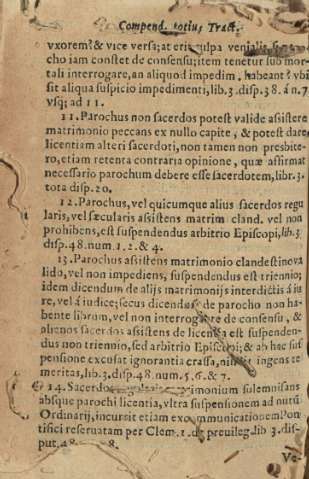 Compend. totius Tract.
vxorem? & vice versa; at erit culpa venialis, si
cho iam constet de consensu; item tenetur sub mor-
tali interrogare, an aliquod impedim. habeant? vbi
sit aliqua suspicio impedimenti, lib. 3. disp. 38. á n. 7
vsq; ad 11.
11. Parochus non sacerdos potest valide assistere
matrimonio peccans ex nullo capite, & potest dare
licentiam alteri sacerdoti, non tamen non presbite-
ro, etiam retenta contraria opinione, quæ affirmat
necessario parochum debere esse sacerdotem, libr. 3.
tota disp. 20.
12. Parochus, vel quicumque alius sacerdos regu
laris, vel sæcularis assistens matrim cland. vel non
prohibens, est suspendendus arbitrio Episcopi, lib. 3
disp. 48. num. 1. 2. & 4.
13. Parochus assistens matrimonio clandestino va
lido, vel non impediens, suspendendus est triennio;
idem dicendum de alijs matrimonijs interdictis á iu
re, vel á iudice; secus dicendum de parocho non ha-
bente librum, vel non interrogare de consensu, &
alienos sacerdos assistens de licentia est suspenden-
dus non triennio, sed arbitrio Episcopi; & ab hac sus
pensione excusat ignorantia crassa, nisi sit ingens te
meritas, lib. 3. disp. 48. num. 5. 6. & 7.
14. Sacerdos matrimonium solemnisans
absque parochi licentia, vltra suspensionem ad nutũ
Ordinarij, incurrit etiam excommunicationem Pon
tifici reseruatam per Clem. 1. de preuileg. lib 3. dis-
put. 48. 8.
Ve-